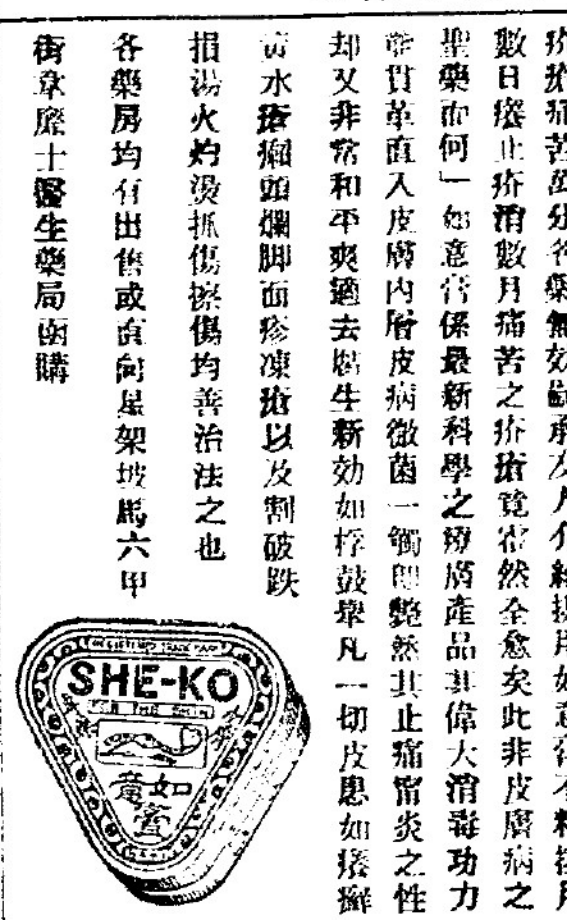 疥瘡痛苦萬分各藥無效嗣承友人介紹提用如意膏不料搽用
數日癢止疥消數月痛苦之疥瘡竟霍然全愈矣此非皮膚病之
聖藥而何」如意膏係最新科學之療膚產品其偉大消毒功力
能貫革直入皮膚內層皮病微菌一觸即斃然其止痛消炎之性
却又非常和平爽適去焐生新効如桴鼓舉凡一切皮患如癢癬
黃水瘡癩頭爛脚面疹凍瘡以及割破跌
損湯火灼燙抓傷擦傷均善治法之也
各藥房均有出售或直向星架坡馬六甲
街韋廉士醫生藥局函購
REGISTERED TRADE MARK
SHE-KO
FOR THE SKIN
如意
膏